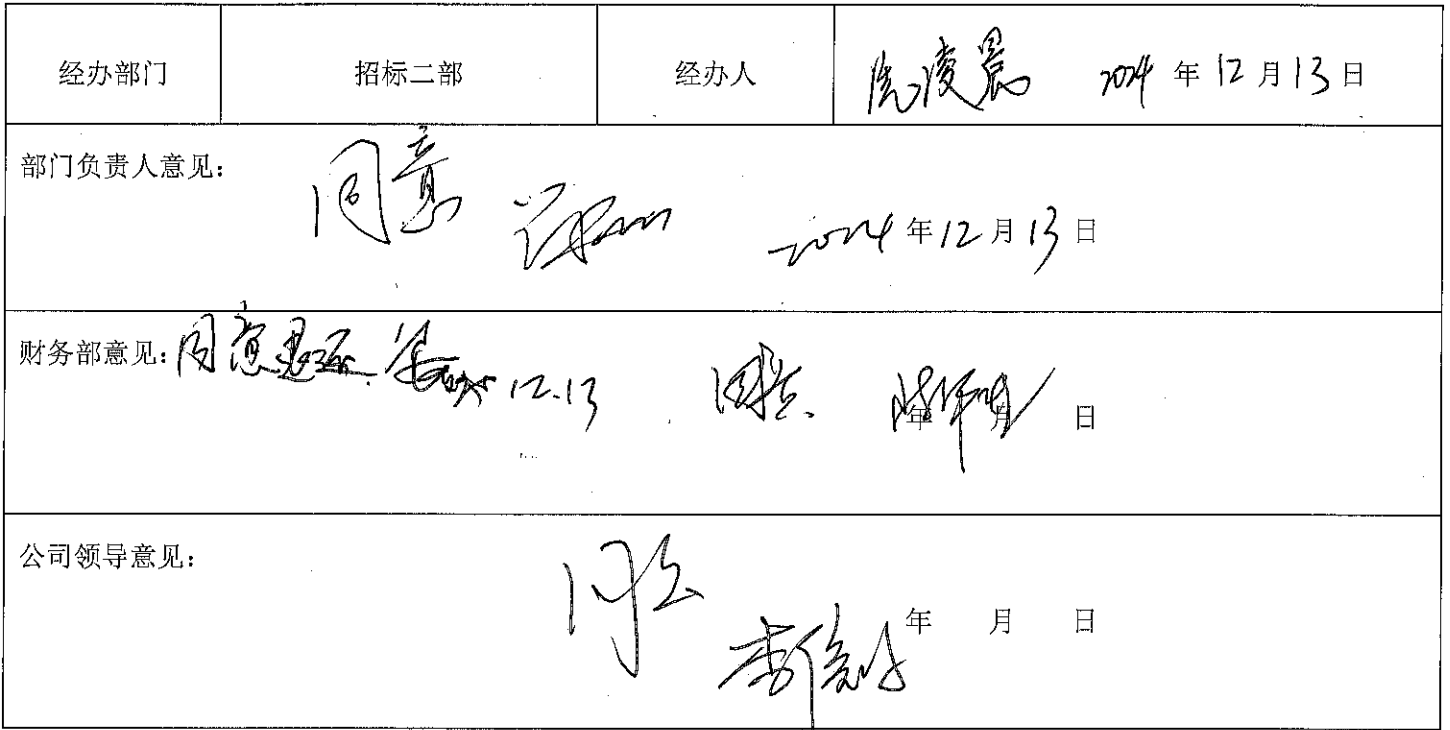 经办部门 招标二部 经办人 凌晨 2024 年 12 月 13 日
部门负责人意见： 同意 2024 年 12 月 13 日
财务部意见： 同意退还. 12.13 同意. 年 月 日
公司领导意见： 同意 年 月 日